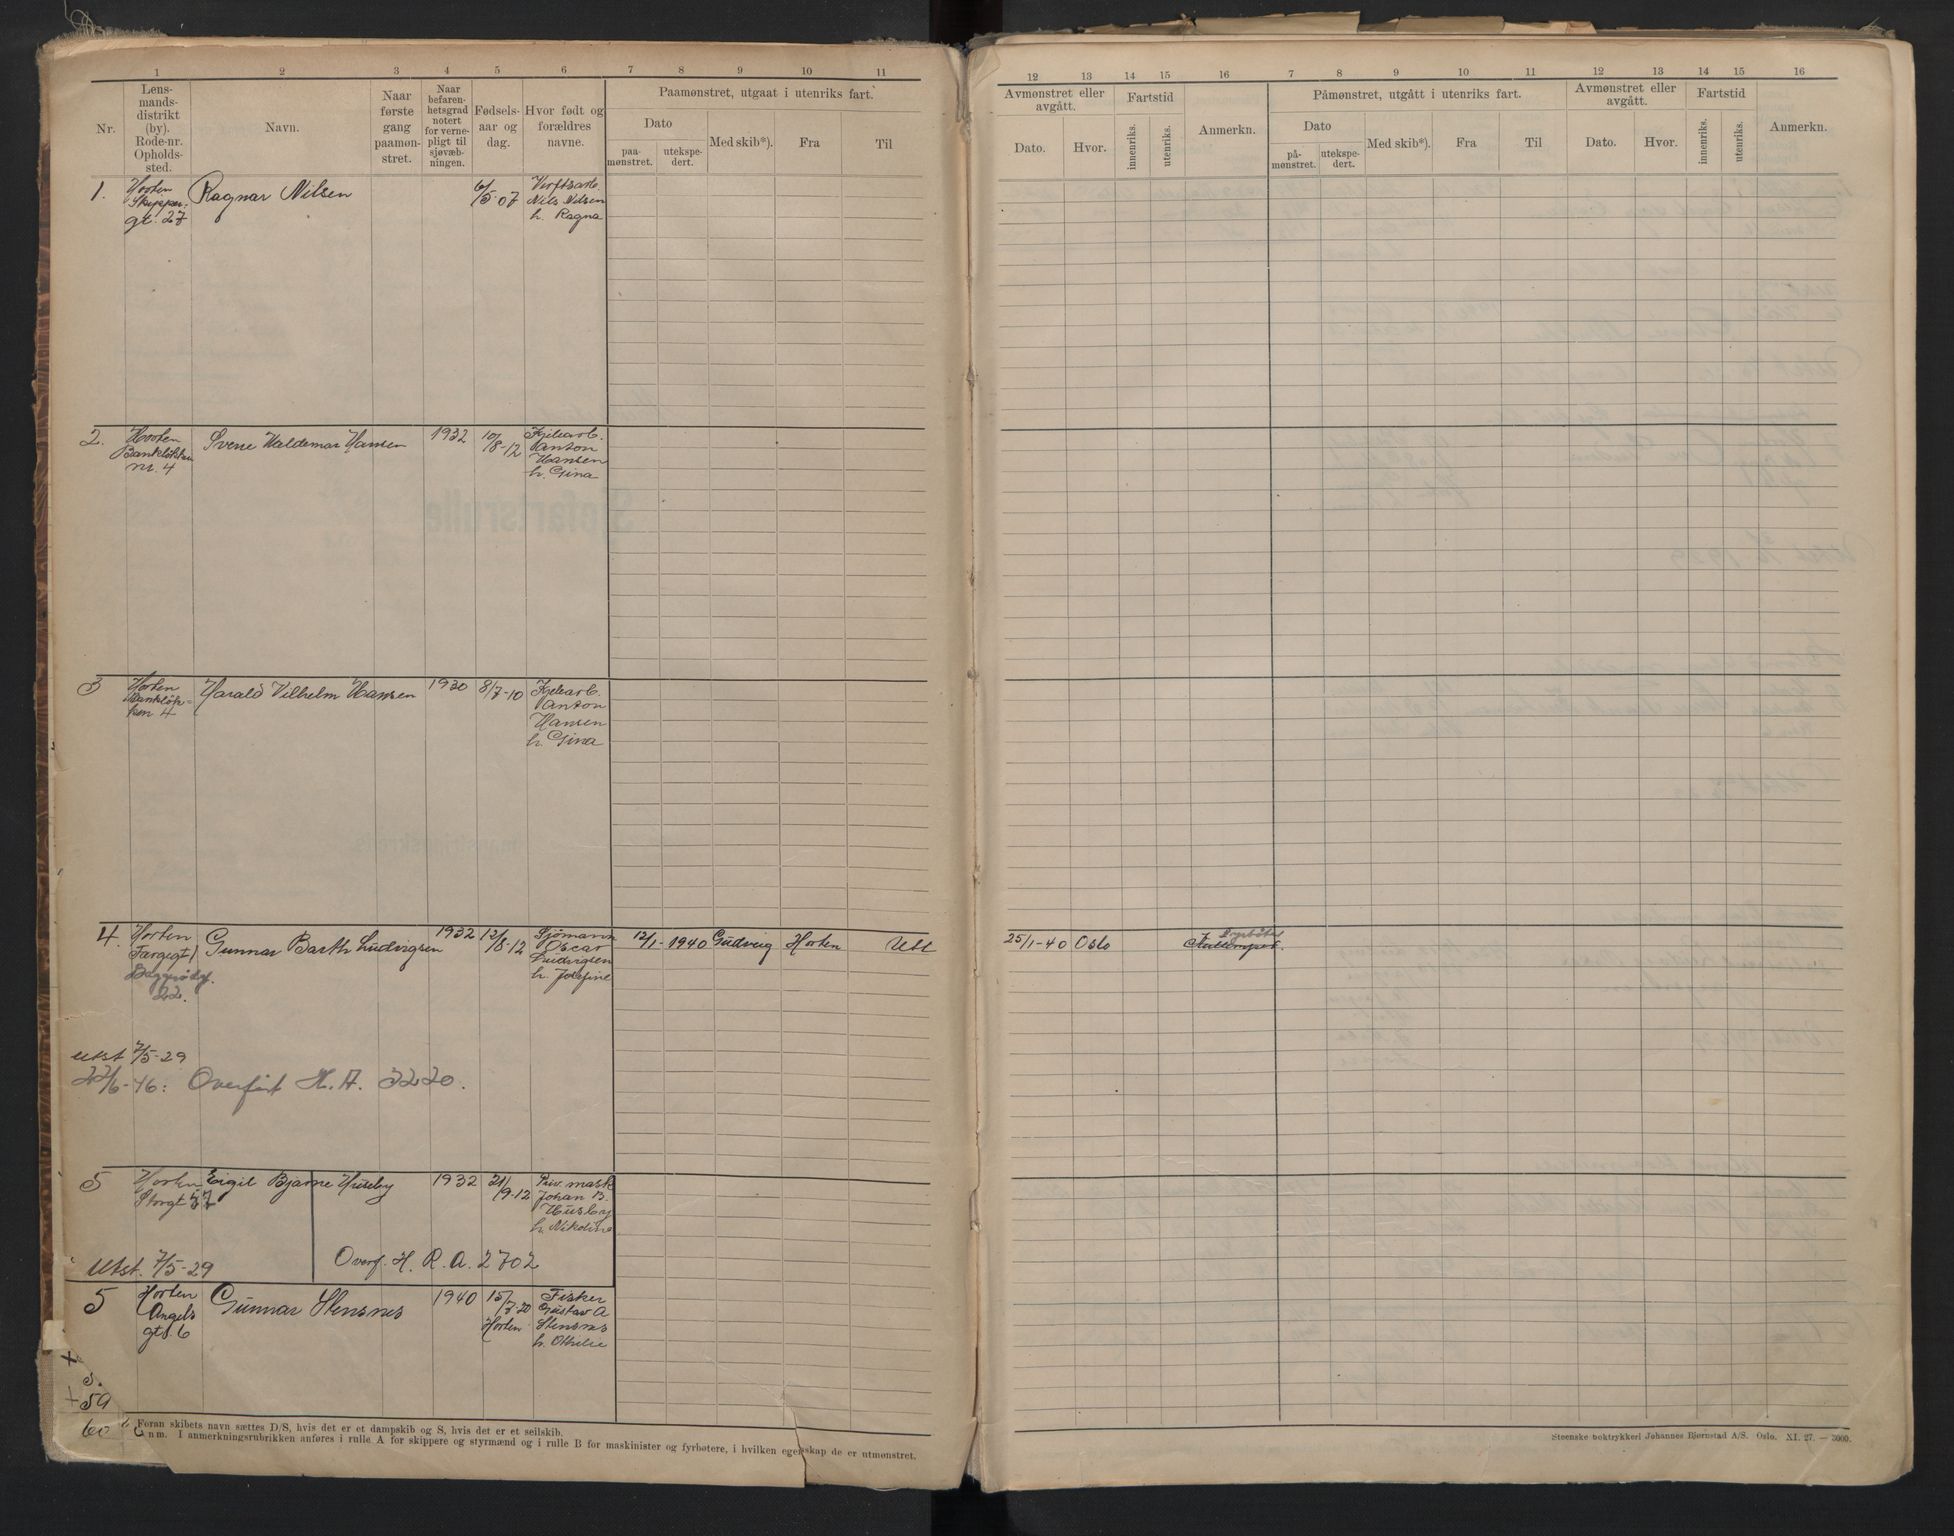 1 2 3 4 5 6 7 8 9 10 11
Nr.
Lens-
mands-
distrikt
(by).
Rode-nr.
Opholds-
sted.
Navn.
Naar
første
gang
paamøn-
stret.
Naar
befaren-
hetsgrad
notert
for verne-
pligt til
sjøvæb-
ningen.
Fødsels-
aar og
dag.
Hvor født og
forældres
navne.
Paamønstret, utgaat i utenriks fart.
Dato
paa-
mønstret.
utekspe-
dert.
Med skib*).
Fra
Til
12 13 14 15 16 7 8 9 10 11 12 13 14 15 16
Avmønstret eller
avgått.
Dato.
Hvor.
Fartstid
innenriks.
utenriks.
Anmerkn.
Påmønstret, utgått i utenriks fart.
Dato
på-
mønstret.
utekspe-
dert.
Med skib*).
Fra
Til
Avmønstret eller
avgått.
Dato.
Hvor.
Fartstid
innenriks.
utenriks.
Anmerkn.
1. Horten Ragnar Nilsen 6/5-07 Verftsarb.
Skipper- Nils Nilsen
gt. 27 h. Ragna
2. Horten Sverre Waldemar Hansen 1932 10/8-12 Kjelearb.
Bankløkken Anton
nr. 4 Hansen
h. Gina
3 Horten Harald Vilhelm Hansen 1930 8/7-10 Kjelearb.
Bankløk- Anton
ken 4 Hansen
h. Gina
4. Horten Gunnar Barth Ludvigsen 1932 12/8-12 Sjømann 12/1-1940 Gudveig Horten Utl 25/1-40 Oslo Fyrbøter
Fargegt Oscar
Ludvigsen
22. h. Josefine
utst 7/5-29
22/6-46: Overført H. A. 3220.
5 Horten Eigil Bjarne Huseby 1932 21/9-12
Storgt 57 Johan B.
Husby
h. Nikoline
Utst. 7/5-29 Overf. H. R. A. 2702
5 Horten Gunnar Stensnes 1940 15/7-20 Fisker
Angels Horten Gustav A
gt. 6 Stensnes
h. Othilie
+ 5a
60
Foran skibets navn sættes D/S, hvis det er et dampskib og S, hvis det er et seilskib.
nm. I anmerkningsrubrikken anføres i rulle A for skippere og styrmænd og i rulle B for maskinister og fyrbøtere, i hvilken egenskap de er utmønstret.
Steenske boktrykkeri Johannes Bjørnstad A/S. Oslo. XI. 27. — 3000.